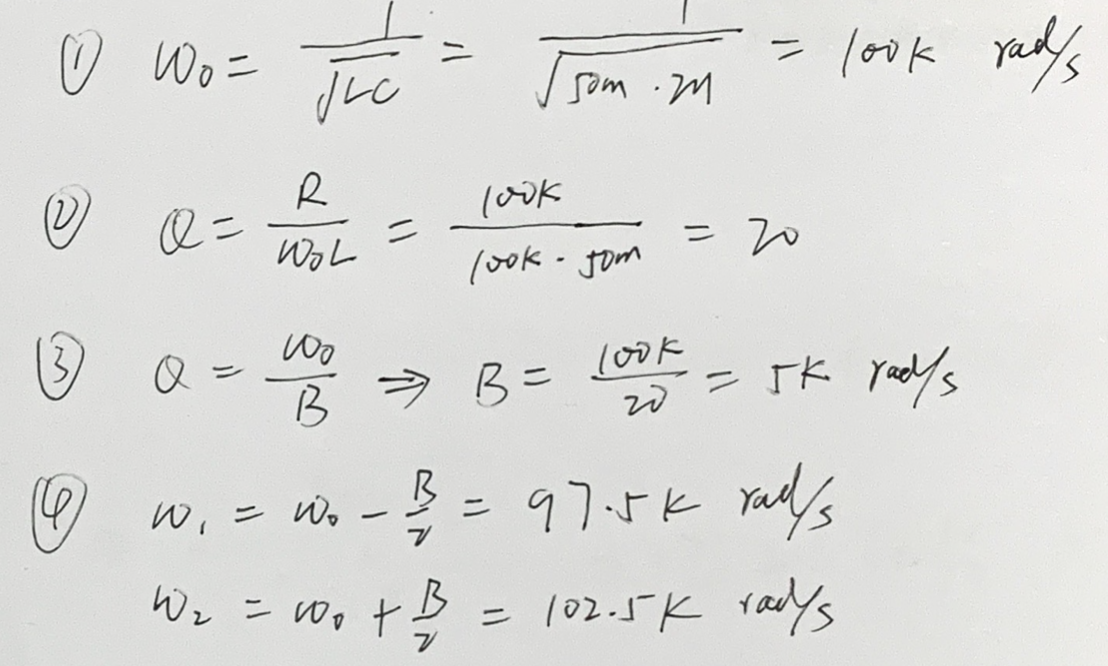 ① ω₀ = 1/√LC = 1/√50m · 2n = 100K rad/s
② Q = R/ω₀L = 100K/100K · 50m = 20
③ Q = ω₀/B ⇒ B = 100K/20 = 5K rad/s
④ ω₁ = ω₀ - B/2 = 97.5K rad/s
ω₂ = ω₀ + B/2 = 102.5K rad/s